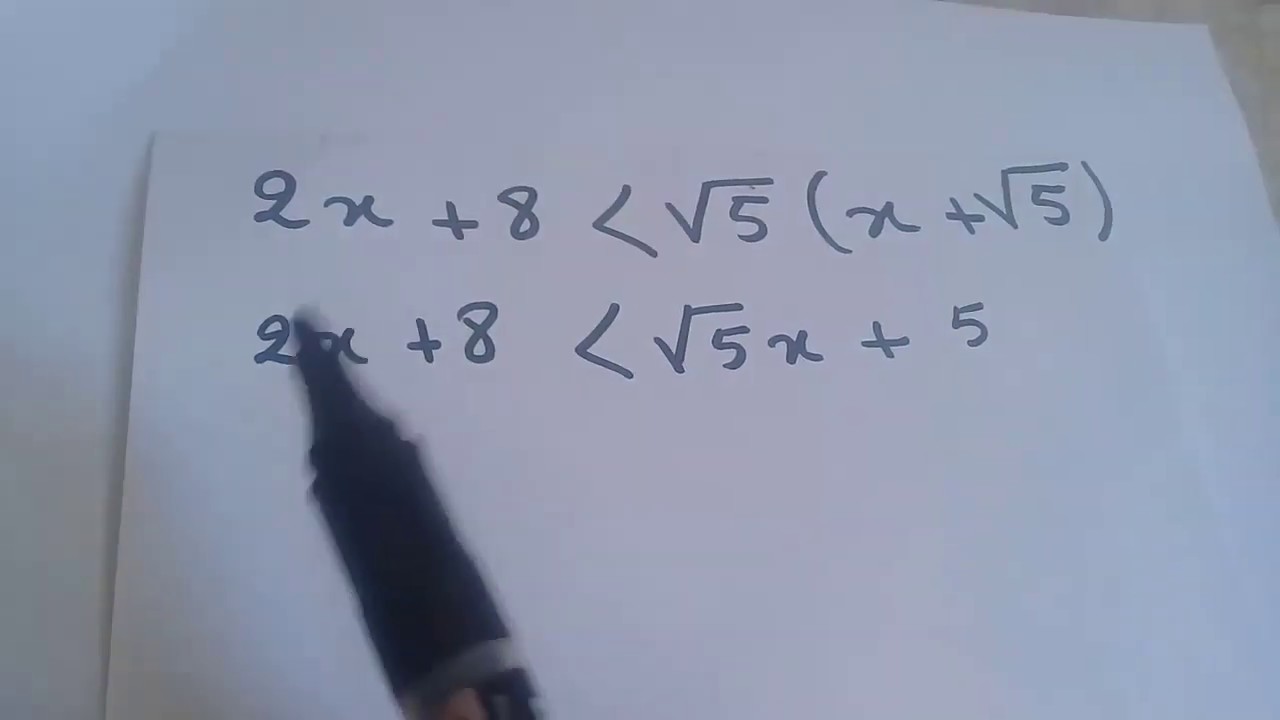 2x + 8 < √5 (x + √5)
2x + 8 < √5x + 5